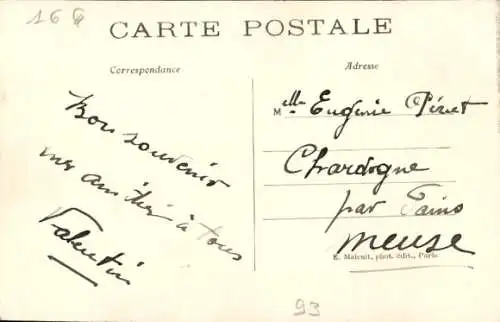 16
CARTE POSTALE
Correspondance
Adresse
Bon souvenir
mes amitiés à tous
Valentin
Melle Eugenie
Chardogne
par
Meuse
E. Malcuit, phot. édit., Paris
93